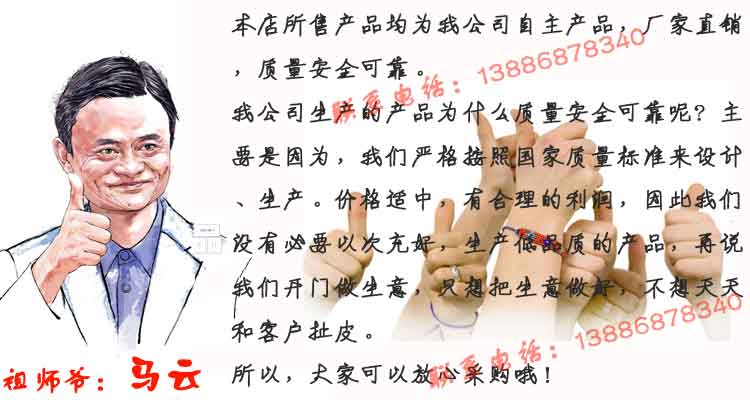 本店所售产品均为我公司自主产品，厂家直销
，质量安全可靠。
联系电话：13886878340
我公司生产的产品为什么质量安全可靠呢？主
要是因为，我们严格按照国家质量标准来设计
、生产。价格适中，有合理的利润，因此我们
没有必要以次充好，生产低品质的产品，再说
我们开门做生意，只想把生意做好，不想天天
和客户扯皮。
联系电话：13886878340
所以，大家可以放心采购哦！
祖师爷：马云